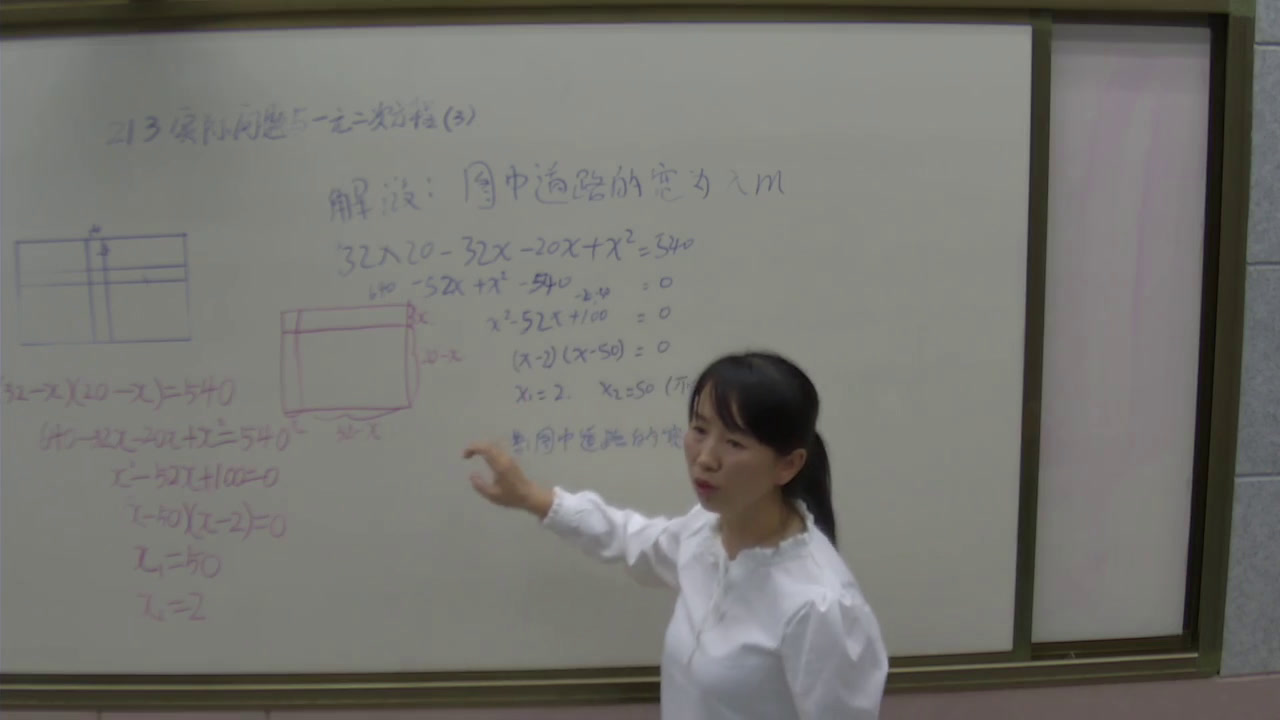 21.3 实际问题与一元二次方程(3)
解 设: 图中道路的宽为 x m
32×20-32x-20x+x²=540
640 -52x+x²-540 =0
x²-52x+100 =0
(x-2)(x-50)=0
x₁=2. x₂=50 (不
图中道路的宽
x
20-x
32-x
(32-x)(20-x)=540
640-32x-20x+x²=540
x²-52x+100=0
x-50)(x-2)=0
x₁=50
x₂=2